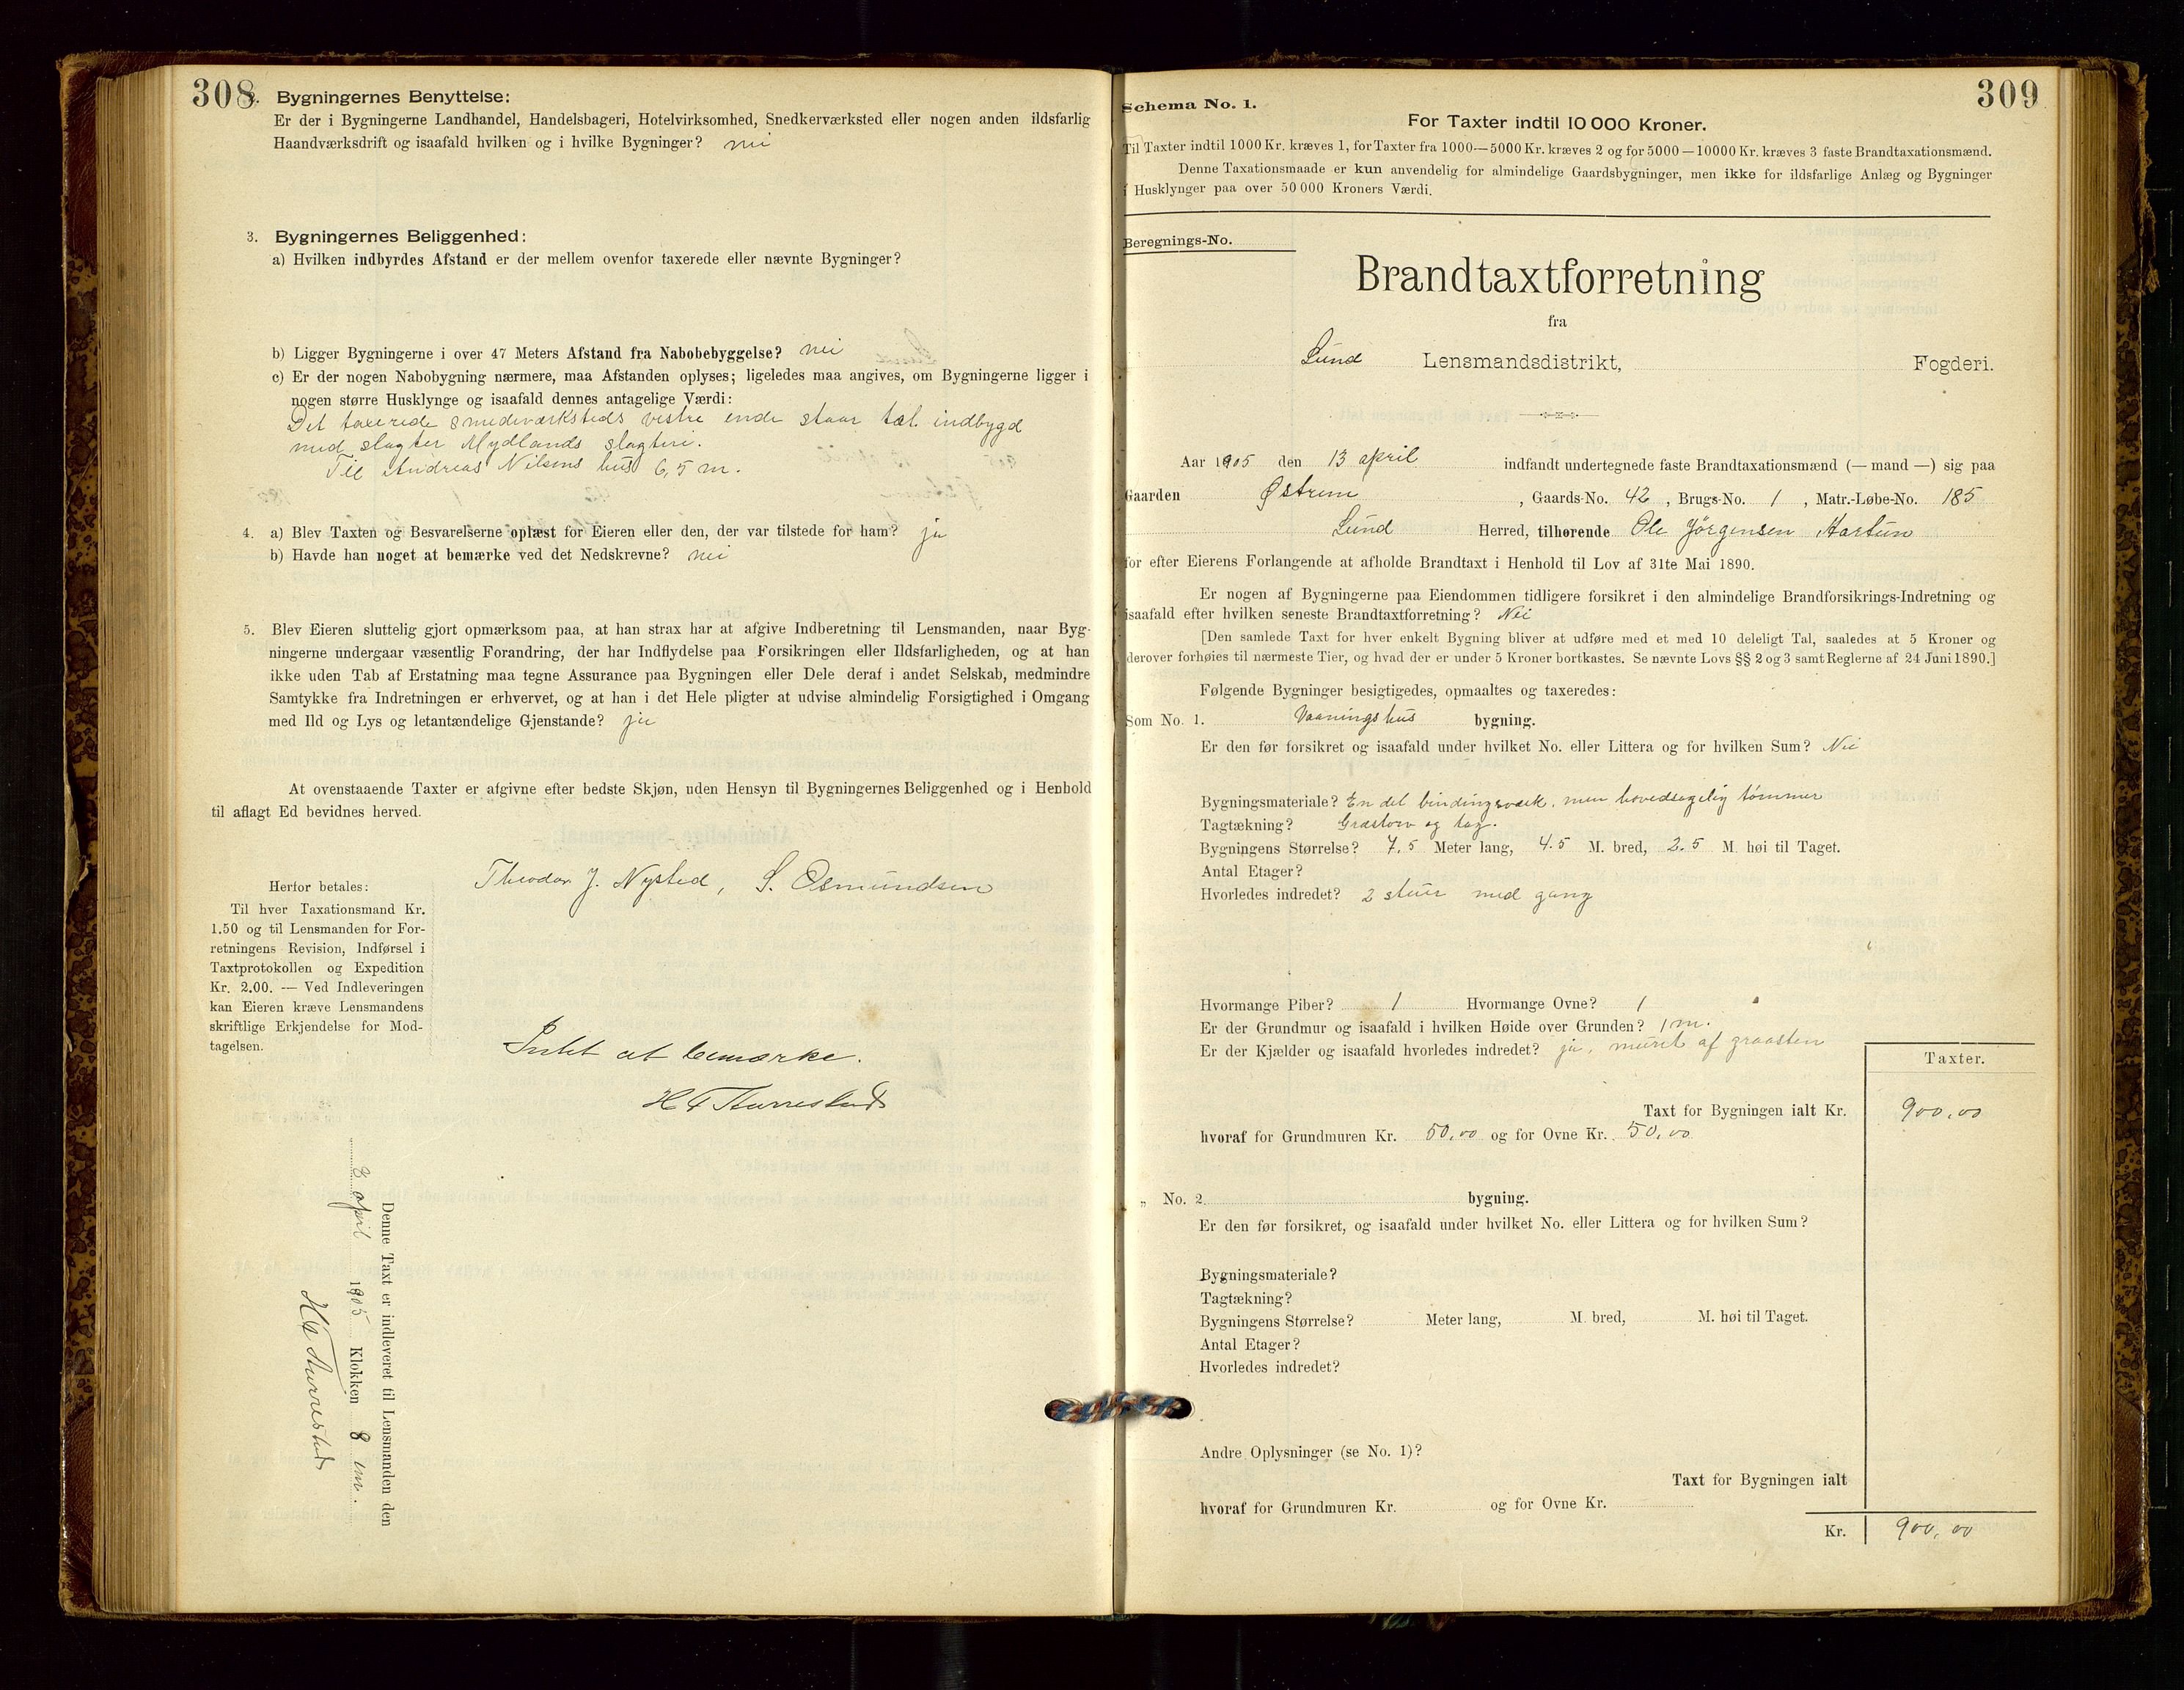 308
2. Bygningernes Benyttelse:
Er der i Bygningerne Landhandel, Handelsbageri, Hotelvirksomhed, Snedkerværksted eller nogen anden ildsfarlig
Haandværksdrift og isaafald hvilken og i hvilke Bygninger? nei
3. Bygningernes Beliggenhed:
a) Hvilken indbyrdes Afstand er der mellem ovenfor taxerede eller nævnte Bygninger?
b) Ligger Bygningerne i over 47 Meters Afstand fra Nabobebyggelse? nei
c) Er der nogen Nabobygning nærmere, maa Afstanden oplyses; ligeledes maa angives, om Bygningerne ligger i
nogen større Husklynge og isaafald dennes antagelige Værdi:
Det taxerede smedeværksteds vestre ende staar tæt indbygd
med slagter Mydlands slagteri.
Til Andreas Nilsens hus 6,5 m.
4. a) Blev Taxten og Besvarelserne oplæst for Eieren eller den, der var tilstede for ham? ja
b) Havde han noget at bemærke ved det Nedskrevne? nei
5. Blev Eieren sluttelig gjort opmærksom paa, at han strax har at afgive Indberetning til Lensmanden, naar Byg-
ningerne undergaar væsentlig Forandring, der har Indflydelse paa Forsikringen eller Ildsfarligheden, og at han
ikke uden Tab af Erstatning maa tegne Assurance paa Bygningen eller Dele deraf i andet Selskab, medmindre
Samtykke fra Indretningen er erhvervet, og at han i det Hele pligter at udvise almindelig Forsigtighed i Omgang
med Ild og Lys og letantændelige Gjenstande? ja
At ovenstaaende Taxter er afgivne efter bedste Skjøn, uden Hensyn til Bygningernes Beliggenhed og i Henhold
til aflagt Ed bevidnes herved.
Theodor J. Nysted, S. Osmundsen
Herfor betales:
Til hver Taxationsmand Kr.
1.50 og til Lensmanden for For-
retningens Revision, Indførsel i
Taxtprotokollen og Expedition
Kr. 2.00. — Ved Indleveringen
kan Eieren kræve Lensmandens
skriftlige Erkjendelse for Mod-
tagelsen.
Intet at bemærke.
Denne Taxt er indleveret til Lensmanden den
april 1905 Klokken 8 em.
309
Schema No. 1.
For Taxter indtil 10 000 Kroner.
Til Taxter indtil 1000 Kr. kræves 1, for Taxter fra 1000—5000 Kr. kræves 2 og for 5000—10000 Kr. kræves 3 faste Brandtaxationsmænd.
Denne Taxationsmaade er kun anvendelig for almindelige Gaardsbygninger, men ikke for ildsfarlige Anlæg og Bygninger
i Husklynger paa over 50 000 Kroners Værdi.
Beregnings-No.
Brandtaxtforretning
fra
Lund Lensmandsdistrikt, Fogderi.
Aar 1905 den 13 april indfandt undertegnede faste Brandtaxationsmænd (— mand —) sig paa
Gaarden Østrem, Gaards-No. 42, Brugs-No. 1, Matr.-Løbe-No. 185
Lund Herred, tilhørende Ole Jörgensen Aartun
for efter Eierens Forlangende at afholde Brandtaxt i Henhold til Lov af 31te Mai 1890.
Er nogen af Bygningerne paa Eiendommen tidligere forsikret i den almindelige Brandforsikrings-Indretning og
isaafald efter hvilken seneste Brandtaxtforretning? Nei
[Den samlede Taxt for hver enkelt Bygning bliver at udføre med et med 10 deleligt Tal, saaledes at 5 Kroner og
derover forhøies til nærmeste Tier, og hvad der er under 5 Kroner bortkastes. Se nævnte Lovs §§ 2 og 3 samt Reglerne af 24 Juni 1890.]
Følgende Bygninger besigtigedes, opmaaltes og taxeredes:
Som No. 1. Vaaningshus bygning.
Er den før forsikret og isaafald under hvilket No. eller Littera og for hvilken Sum? Nei
Bygningsmateriale? En del bindingsværk, men hovedsagelig tömmer
Tagtækning? Græstorv og
Bygningens Størrelse? 7.5 Meter lang, 4.5 M. bred, 2.5 M. høi til Taget.
Antal Etager?
Hvorledes indredet? 2 stuer med gang
Hvormange Piber? 1 Hvormange Ovne? 1
Er der Grundmur og isaafald i hvilken Høide over Grunden? 1 m.
Er der Kjælder og isaafald hvorledes indredet? ja, muret af graasten
Taxter.
Taxt for Bygningen ialt Kr. 900,00
hvoraf for Grundmuren Kr. 50,00 og for Ovne Kr. 50,00
„ No. 2. bygning.
Er den før forsikret, og isaafald under hvilket No. eller Littera og for hvilken Sum?
Bygningsmateriale?
Tagtækning?
Bygningens Størrelse? Meter lang, M. bred, M. høi til Taget.
Antal Etager?
Hvorledes indredet?
Andre Oplysninger (se No. 1)?
Taxt for Bygningen ialt
hvoraf for Grundmuren Kr. og for Ovne Kr.
Kr. 900,00